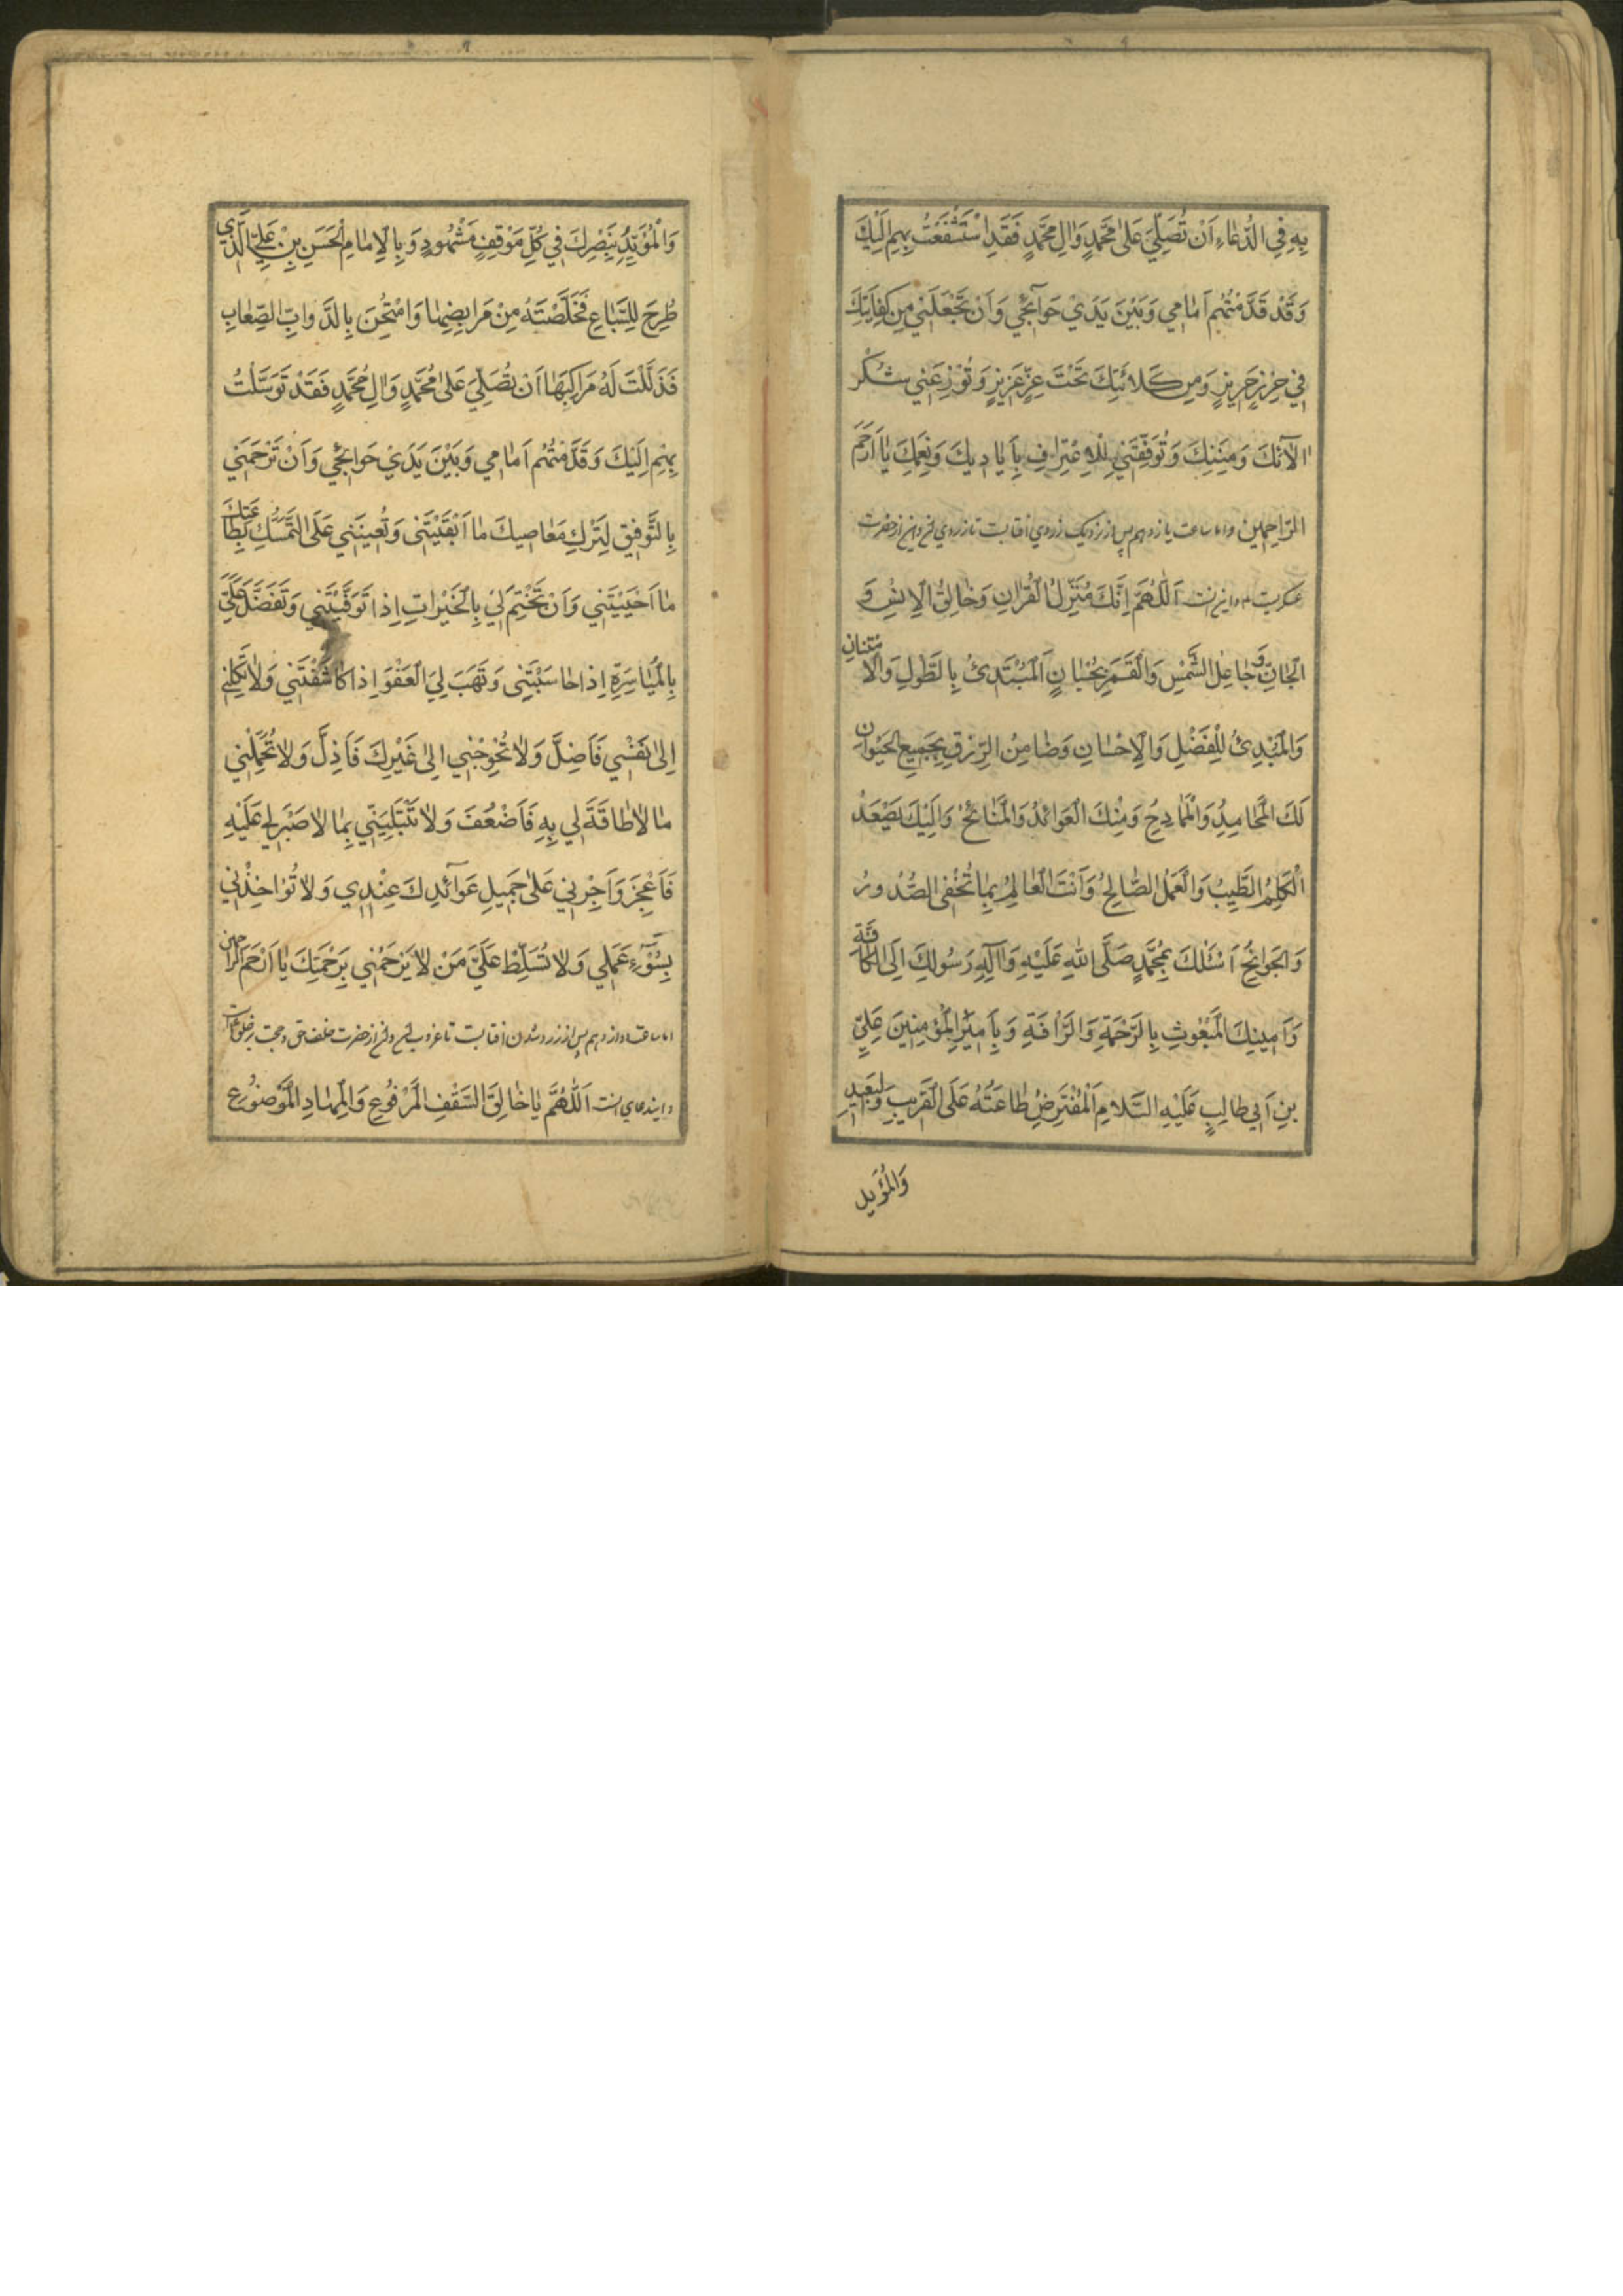 بِهِ فِي الدُّعاءِ اَنْ تُصَلِّيَ عَلىٰ مُحَمَّدٍ وَالِ مُحَمَّدٍ فَقَدِ اسْتَشْفَعْتُ بِهِمْ اِلَيْكَ
وَقَدْ قَدَّمْتُهُم اَمٰامي وَبَيْنَ يَدَيْ حَوٰآئِجي وَاَنْ تَجْعَلَني مِن كِفايَتِكَ
في حِرْزٍ حَرِيزٍ وَمِن كَلائَتِكَ تَحْتَ عِزٍّ عَزيزٍ وَتُوزِعَني شُكْرَ
اٰلآئِكَ وَمِنَنِكَ وَتُوَفِّقَني لِلْاِعْتِرافِ بِاَيٰاديكَ وَنِعَمِكَ يٰا اَرْحَمَ
الرّاحِمينَ واما ساعت يازدهم پس از نزديك زردي افتابست تا زردي واين از حضرت
عسكريست واين است اَللّٰهُمَّ اِنَّكَ مُنَزِّلُ الْقُرْانِ وَخٰالِقُ الْاِنْسِ وَ
الْجٰانِّ وَجٰاعِلُ الشَّمْسِ وَالْقَمَرِ بِحُسْبٰانٍ اَلْمُبْتَدِئُ بِالطَّوْلِ وَالْاِمْتِنانِ
وَالْمُبْدِئُ لِلْفَضْلِ وَالْاِحْسٰانِ وَضٰامِنُ الرِّزْقِ بِجَميعِ الْحَيَوٰانِ
لَكَ الْمَحٰامِدُ وَالْمَمٰادِحُ وَمِنْكَ الْعَوٰائِدُ وَالْمَنٰائِحُ وَاِلَيْكَ يَصْعَدُ
الْكَلِمُ الطَّيِّبُ وَالْعَمَلُ الصّٰالِحُ وَاَنْتَ الْعٰالِمُ بِمٰا تُخْفِي الصُّدُورُ
وَالْجَوٰانِحُ اَسْئَلُكَ بِمُحَمَّدٍ صَلَّى اللهِ عَلَيْهِ وَاٰلِهِ رَسُولِكَ اِلَى الْكٰافَّةِ
وَاَمينِكَ الْمَبْعُوثِ بِالرَّحْمَةِ وَالرَّأْفَةِ وَبِاَميرِ الْمُؤْمِنينَ عَلِيِّ
بنِ اَبي طالِبٍ عَلَيْهِ السَّلامِ اَلْمُفْتَرِضِ طٰاعَتُهُ عَلَى الْقَريبِ وَالْبَعيدِ
وَالْمُؤَيَّدِ
وَالْمُؤَيَّدِ بِنَصْرِكَ في كُلِّ مَوْقِفٍ مَشْهُودٍ وَبِالْاِمٰامِ الْحَسَنِ بْنِ عَلِيٍّ الَّذي
طُرِحَ لِلسِّبٰاعِ فَخَلَّصْتَهُ مِنْ مَرابِضِهٰا وَامْتُحِنَ بِالدَّوابِّ الصِّعٰابِ
فَذَلَّلْتَ لَهُ مَراكِبَهٰا اَنْ تُصَلِّيَ عَلىٰ مُحَمَّدٍ وَالِ مُحَمَّدٍ فَقَدْ تَوَسَّلْتُ
بِهِمْ اِلَيْكَ وَقَدَّمْتُهُم اَمٰامي وَبَيْنَ يَدَيْ حَوائِجي وَاَنْ تَرْحَمَني
بِالتَّوْفيقِ لِتَرْكِ مَعٰاصيكَ مٰا اَبْقَيْتَني وَتُعينَني عَلَى التَّمَسُّكِ بِطٰاعَتِكَ
مٰا اَحْيَيْتَني وَاَنْ تَخْتِمَ لي بِالْخَيْراتِ اِذا تَوَفَّيْتَني وَتَفَضَّلَ عَلَيَّ
بِالْمُيٰاسَرَةِ اِذا حٰاسَبْتَني وَتَهَبَ لِيَ الْعَفْوَ اِذا كٰاشَفْتَني وَلاٰ تَكِلْني
اِلىٰ نَفْسي فَاَضِلَّ وَلاٰ تُحْوِجْني اِلىٰ غَيْرِكَ فَاَذِلَّ وَلاٰ تُحَمِّلْني
مٰا لاٰ طٰاقَةَ لي بِهِ فَاَضْعُفَ وَلاٰ تَبْتَلِيَنّي بِمٰا لاٰ صَبْرَ لي عَلَيْهِ
فَاَعْجِزَ وَاَجِرْني عَلىٰ جَميلِ عَوآئِدِكَ عِنْدي وَلاٰ تُؤاخِذْني
بِسُوٓءِ عَمَلي وَلاٰ تُسَلِّطْ عَلَيَّ مَنْ لاٰ يَرْحَمُني بِرَحْمَتِكَ يٰا اَرْحَمَ الرّاحمين
اما ساعت دوازدهم پس از زرد شدن افتابست تا غروب از حضرت خلف حق وحجت بر خلق
واين دعاي است اَللّٰهُمَّ يٰا خٰالِقَ السَّقْفِ الْمَرْفُوعِ وَالْمِهٰادِ الْمَوْضُوعِ